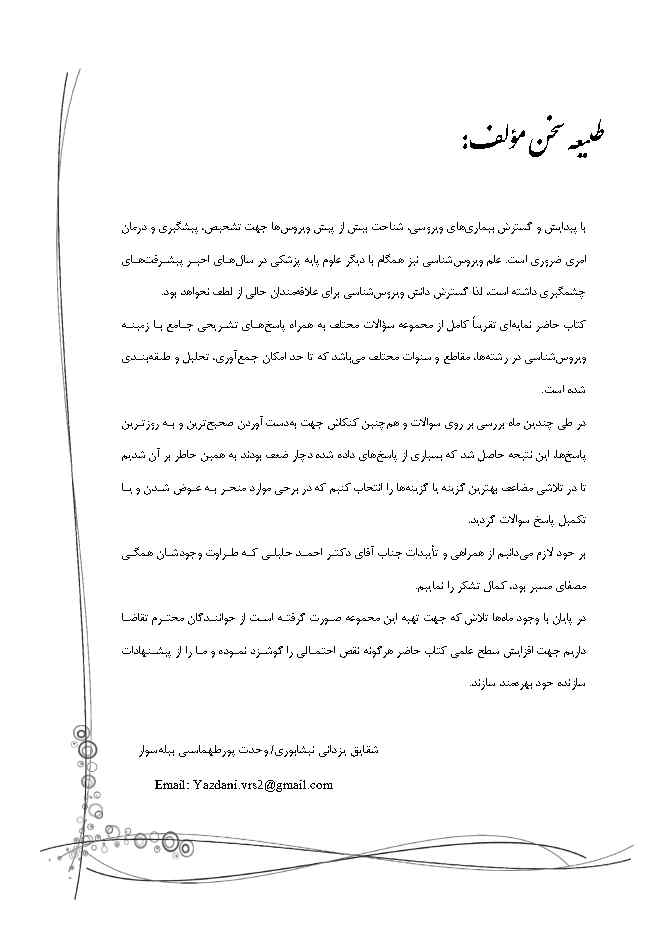 طلیعه سخن مؤلف:
با پیدایش و گسترش بیماری‌های ویروسی، شناخت بیش از پیش ویروس‌ها جهت تشخیص، پیشگیری و درمان
امری ضروری است. علم ویروس‌شناسی نیز همگام با دیگر علوم پایه پزشکی در سال‌های اخیر پیشرفت‌های
چشمگیری داشته است، لذا گسترش دانش ویروس‌شناسی برای علاقه‌مندان خالی از لطف نخواهد بود.
کتاب حاضر نمایه‌ای تقریباً کامل از مجموعه سؤالات مختلف به همراه پاسخ‌های تشریحی جامع با زمینه
ویروس‌شناسی در رشته‌ها، مقاطع و سنوات مختلف می‌باشد که تا حد امکان جمع‌آوری، تحلیل و طبقه‌بندی
شده است.
در طی چندین ماه بررسی بر روی سوالات و هم‌چنین کنکاش جهت به‌دست آوردن صحیح‌ترین و به روزترین
پاسخ‌ها، این نتیجه حاصل شد که بسیاری از پاسخ‌های داده شده دچار ضعف بودند به همین خاطر بر آن شدیم
تا در تلاشی مضاعف بهترین گزینه یا گزینه‌ها را انتخاب کنیم که در برخی موارد منجر به عوض شدن و یا
تکمیل پاسخ سوالات گردید.
بر خود لازم می‌دانیم از همراهی و تأییدات جناب آقای دکتر احمد جلیلی که طراوت وجودشان همگی
مصفای مسیر بود، کمال تشکر را نماییم.
در پایان با وجود ماه‌ها تلاش که جهت تهیه این مجموعه صورت گرفته است از خوانندگان محترم تقاضا
داریم جهت افزایش سطح علمی کتاب حاضر هرگونه نقص احتمالی را گوشزد نموده و ما را از پیشنهادات
سازنده خود بهره‌مند سازند.
شقایق یزدانی نیشابوری/ وحدت پورطهماسبی بیله‌سوار
Email: Yazdani.vrs2@gmail.com